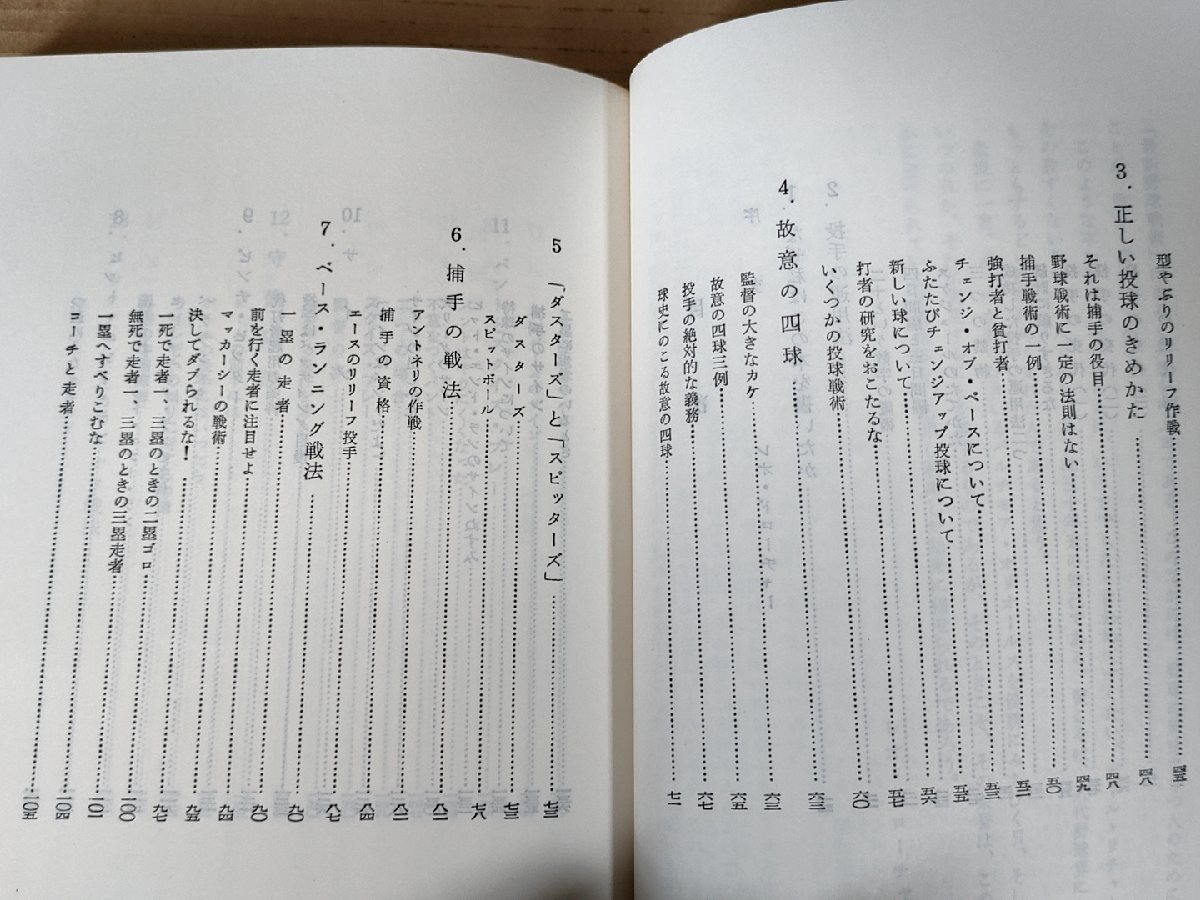 型やぶりのリリーフ作戦……四五
3. 正しい投球のきめかた……四八
それは捕手の役目……四八
野球戦術に一定の法則はない……四九
捕手戦術の一例……五〇
強打者と貧打者……五一
チェンジ・オブ・ペースについて……五三
ふたたびチェンジアップ投球について……五五
新しい球について……五六
打者の研究をおこたるな……五七
いくつかの投球戦術……六〇
4. 故意の四球……六三
監督の大きなカケ……六三
故意の四球三例……六五
投手の絶対的な義務……六七
球史にのこる故意の四球……七一
5 「ダスターズ」と「スピッターズ」……七三
ダスターズ……七三
スピットボール……七八
6. 捕手の戦法……八二
アントネリの作戦……八二
捕手の資格……八四
エースのリリーフ投手……八七
7. ベース・ランニング戦法……九〇
一塁の走者……九〇
前を行く走者に注目せよ……九四
マッカーシーの戦術……九五
決してダブられるな!……九七
一死で走者一、三塁のときの二塁ゴロ……一〇〇
無死で走者一、三塁のときの三塁走者……一〇一
一塁へすべりこむな……一〇四
コーチと走者……一〇五